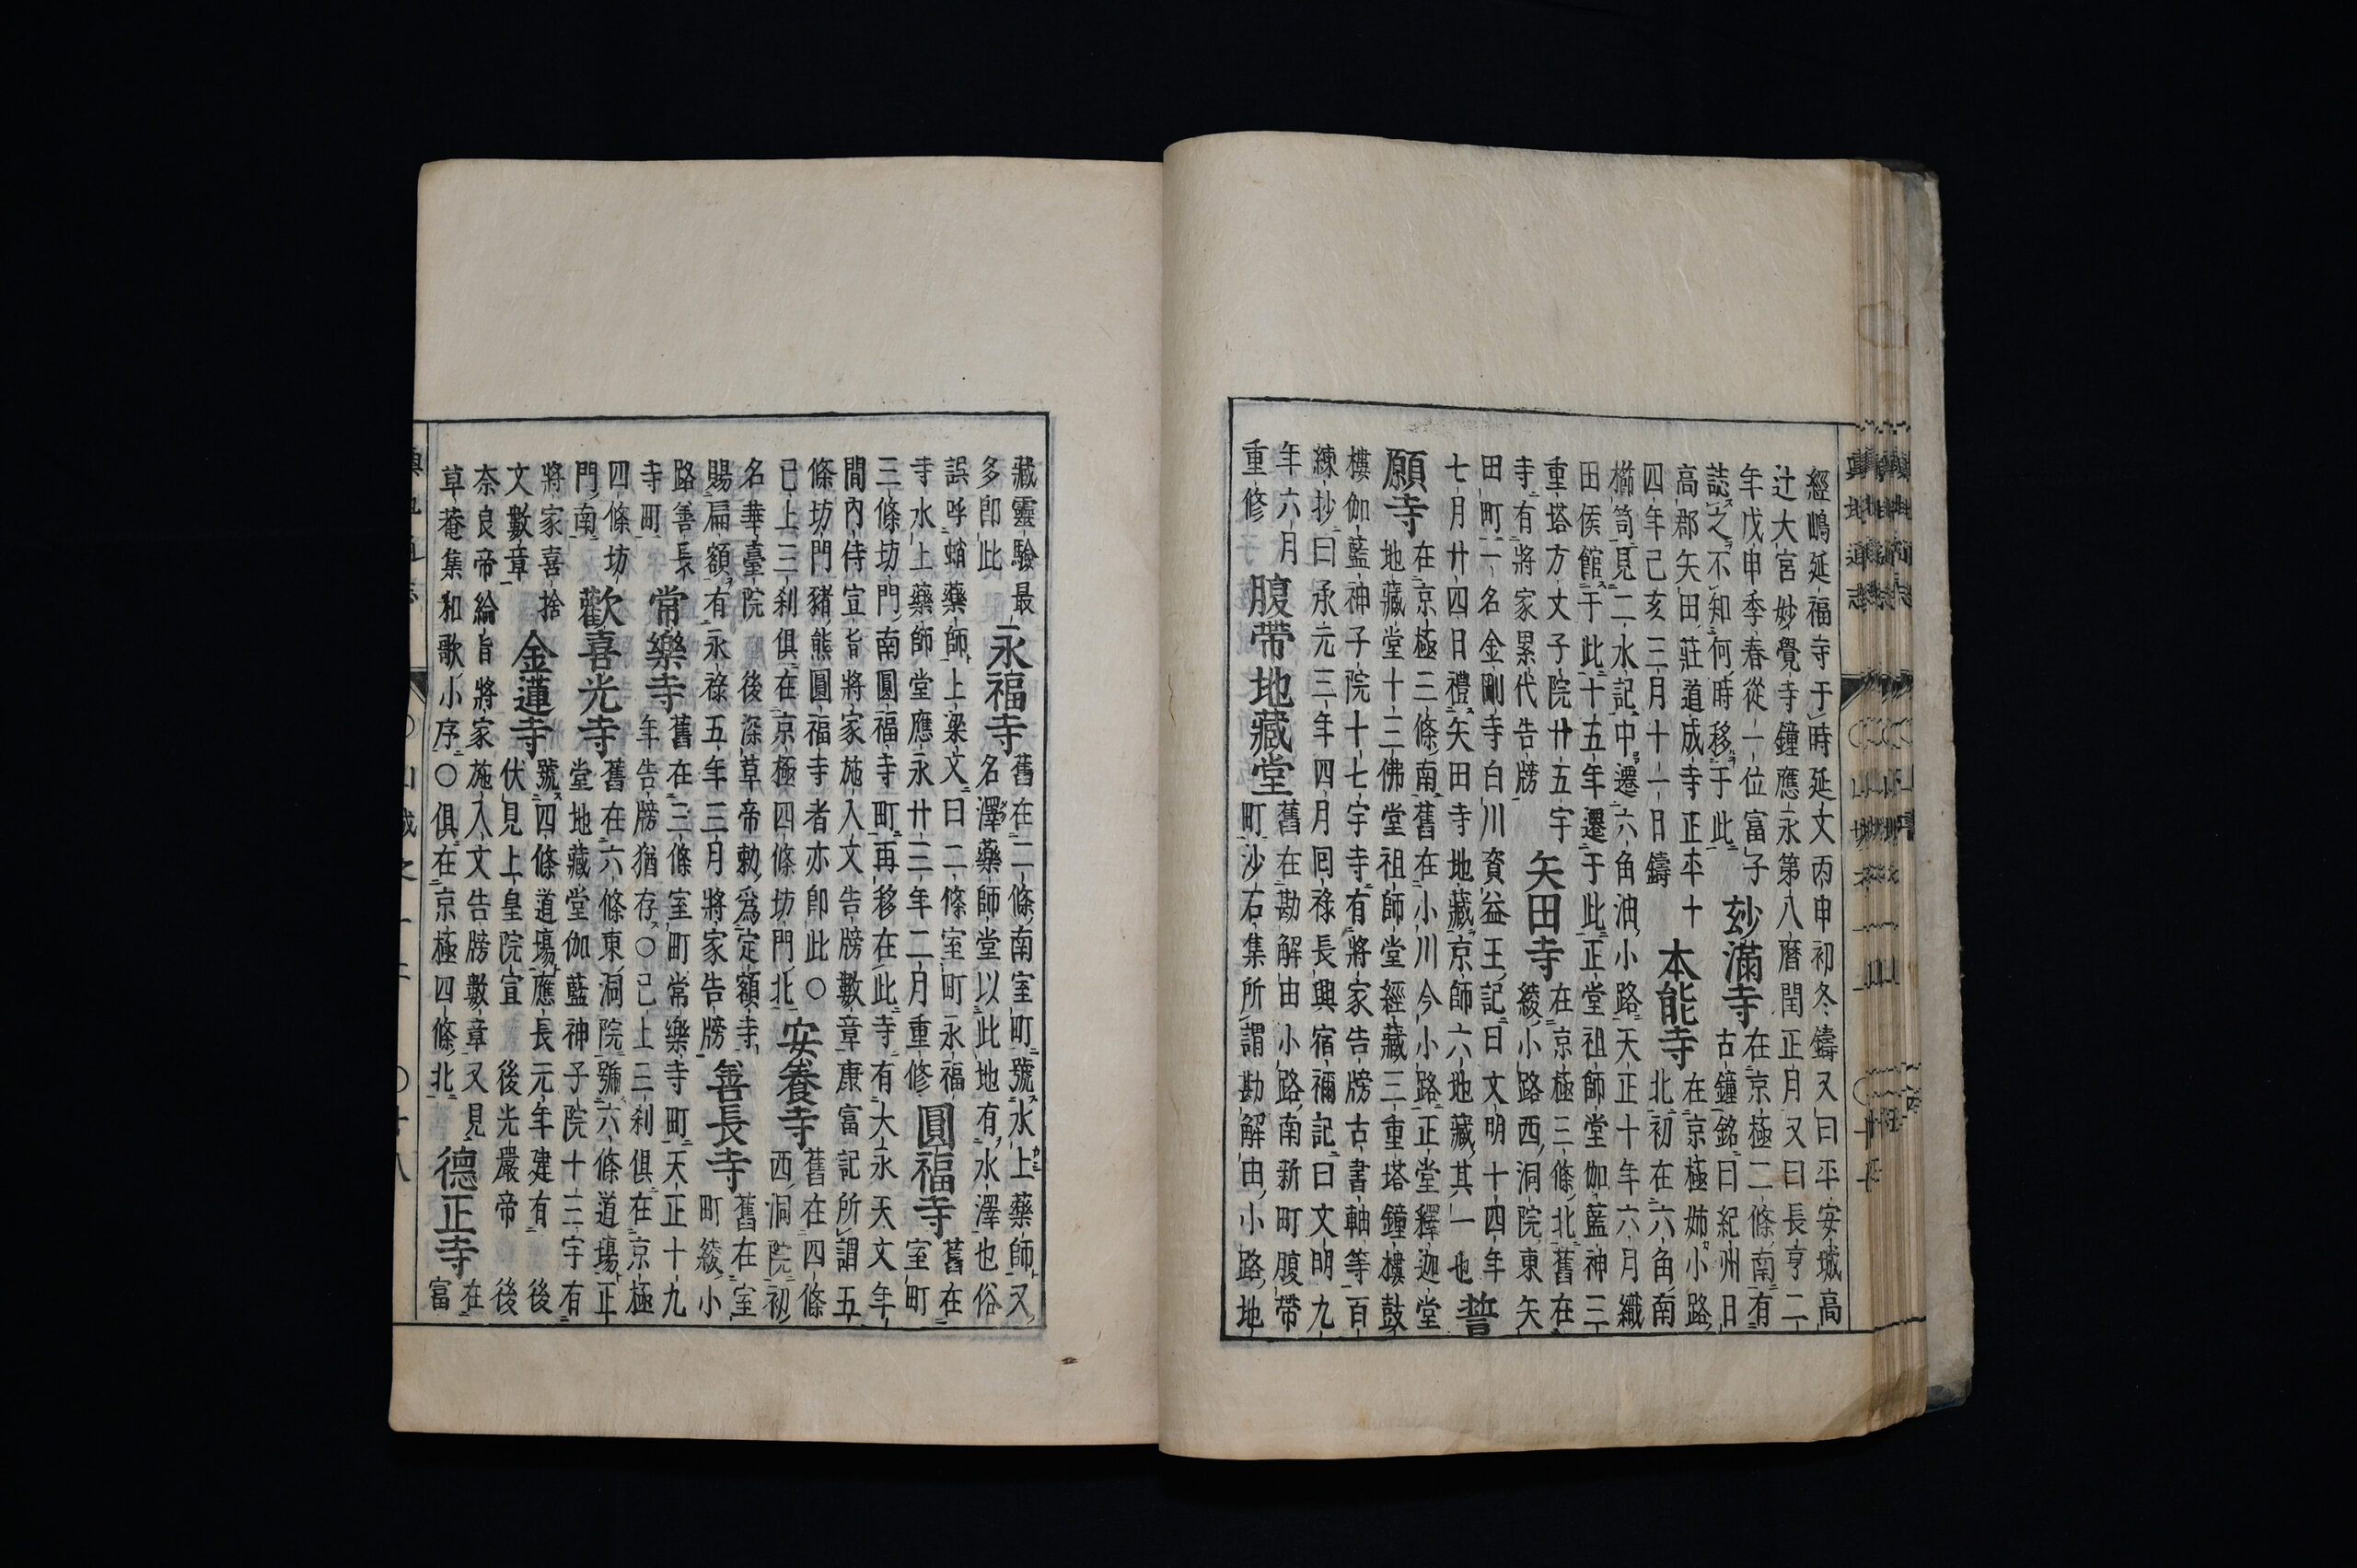 經嶋延福寺于時延文丙申初冬鑄又曰平安城高
辻大宮妙覺寺鐘應永第八曆閏正月又曰長亨二
年戊申季春從一位富子
誌之不知何時移于此
玅滿寺
在京極二條南有
古鐘銘曰紀州日
高郡矢田莊道成寺正平十
四年己亥三月十一日鑄
本能寺
在京極姉小路
北初在六角南
櫛笥見二水記中遷六角油小路天正十年六月織
田侯館于此十五年遷于此正堂祖師堂伽藍神三
重塔方丈子院廿五宇
寺有將家累代告牓
矢田寺
在京極三條北舊在
綾小路西洞院東矢
田町一名金剛寺白川資益王記曰文明十四年
七月廿四日禮矢田寺地藏京師六地藏其一也
誓
願寺
在京極三條南舊在小川今小路正堂釋迦堂
地藏堂十三佛堂祖師堂經藏三重塔鐘樓鼓
樓伽藍神子院十七宇寺有將家告牓古書軸等百
練抄曰承元三年四月囘祿長興宿禰記曰文明九
年六月
重修
腹帶地藏堂
舊在勘解由小路南新町腹帶
町沙石集所謂勘解由小路地
藏靈驗最
多卽此
永福寺
舊在二條南室町號水上藥師又
名澤藥師堂以此地有水澤也俗
誤呼蛸藥師上梁文曰二條室町永福
寺水上藥師堂應永廿三年二月重修
圓福寺
舊在
室町
三條坊門南圓福寺町再移在此寺有大永天文年
間內侍宣旨將家施入文告牓數章康富記所謂五
條坊門豬熊圓福寺者亦卽此○
已上三刹俱在京極四條坊門北
安養寺
舊在四條
西洞院初
名華臺院後深草帝勅爲定額寺
賜扁額有永祿五年三月將家告牓
善長寺
舊在室
町綾小
路善長
寺町
常樂寺
舊在三條室町常樂寺町天正十九
年告牓猶存○已上三刹俱在京極
四條坊
門南
歡喜光寺
舊在六條東洞院號六條道場正
堂地藏堂伽藍神子院十三宇有
將家喜捨
文數章
金蓮寺
號四條道場應長元年建有後
伏見上皇院宣後光嚴帝後
奈良帝綸旨將家施入文告牓數章又見
草菴集和歌小序○俱在京極四條北
德正寺
在
富